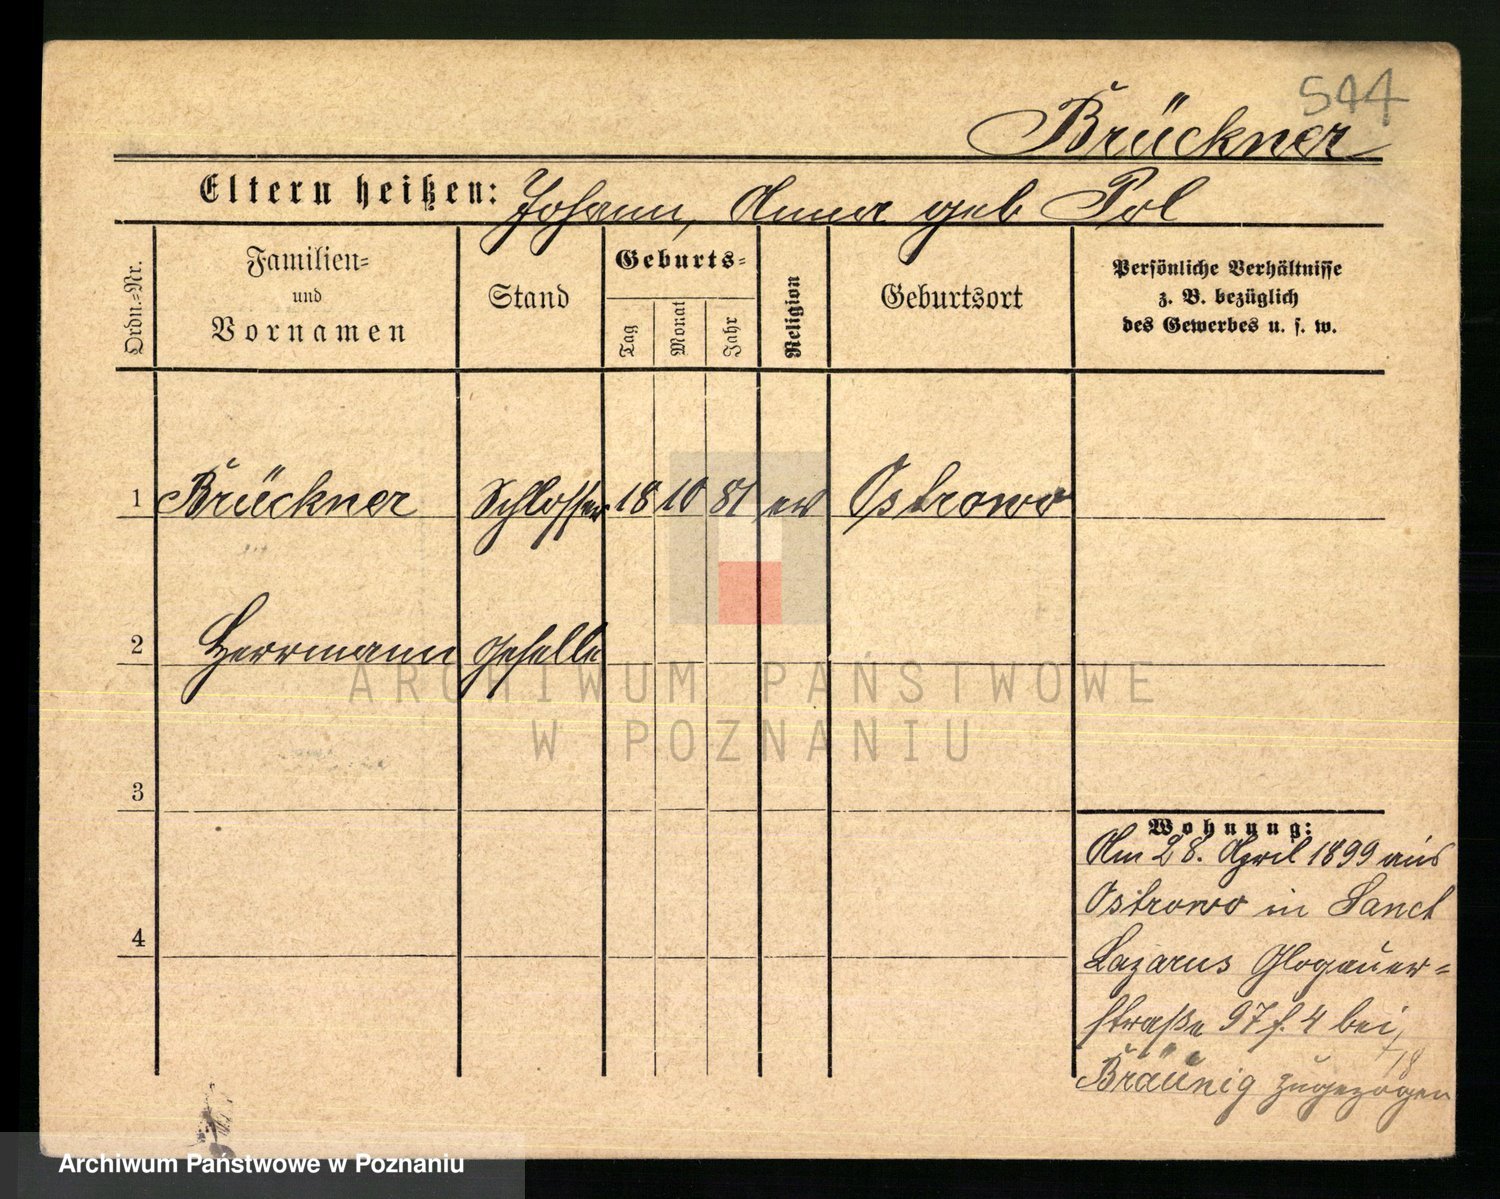 544
Brückner
Eltern heißen: Johann, Anna geb Pol
Ordn.-Nr.
Familien-
und
Vornamen
Stand
Geburts-
Tag
Monat
Jahr
Religion
Geburtsort
Persönliche Verhältnisse
z. B. bezüglich
des Gewerbes u. s. w.
1 Brückner Schlosser 18 10 81 ev Ostrowo
2 Herrmann Geselle
3
4
Wohnung:
Am 28. April 1899 aus
Ostrowo in Sanct
Lazarus Glogauer-
straße 97 f. 4 bei
Bräunig zugezogen
ARCHIWUM PAŃSTWOWE
W POZNANIU
Archiwum Państwowe w Poznaniu